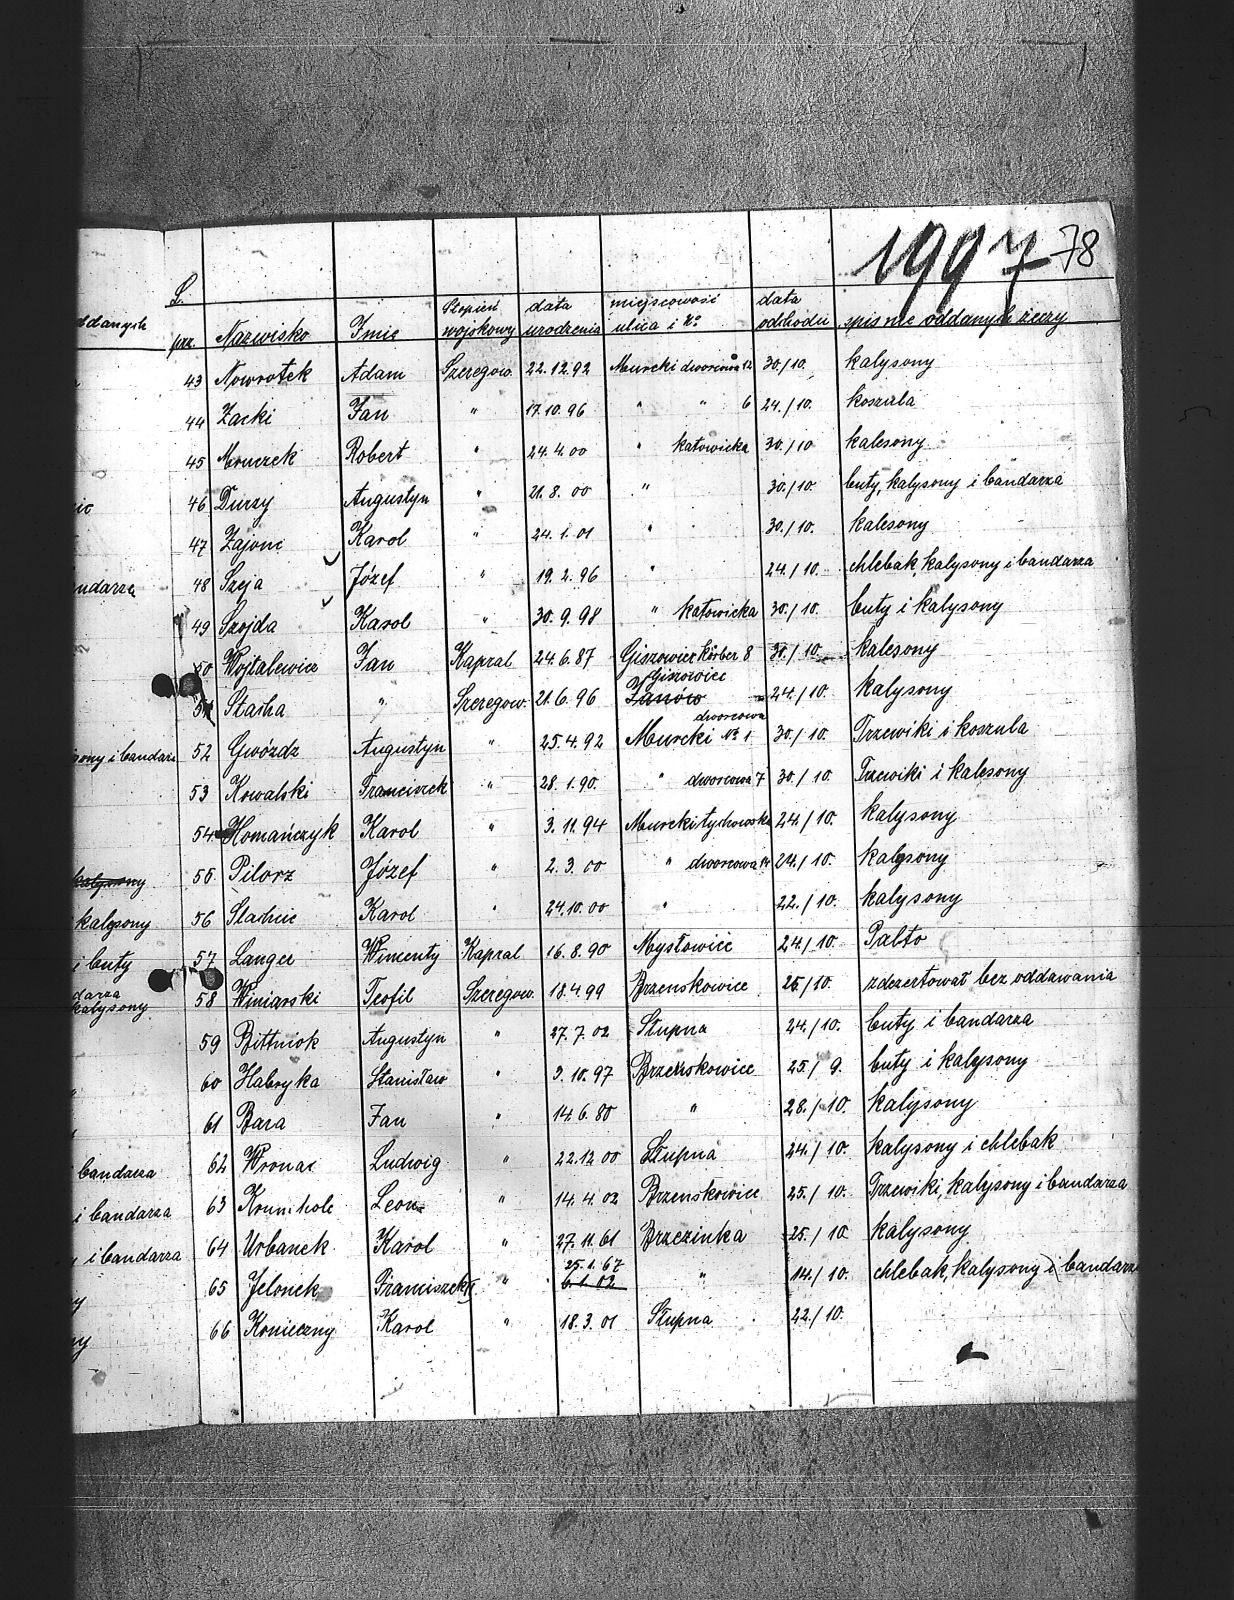 1997 78
L. prz. Nazwisko Imie Stopień wojskowy data urodzenia miejscowość ulica i No data odchodu spis nie oddanych żeczy
43 Nowrotek Adam Szeregow. 22.12.92 Murcki dworcowa 12 30./10. kalysony
44 Zacki Jan " 17.10.96 " " 6 24./10. koszula
45 Mruczek Robert " 24.4.00 " katowicka 30./10 kalesony
46 Durzy Augustyn " 21.8.00 " 30./10. buty, kalysony i bandarza
47 Zajonc Karol " 24.1.01 " 30./10. kalesony
48 Szeja Józef " 19.2.96 " 24./10. chlebak, kalysony i bandarza
49 Szojda Karol " 30.9.98 " katowicka 30./10. buty i kalysony
50 Wojtalewicz Jan Kapral 24.6.87 Giszowiec Körber 8 30./10. kalesony
51 Stacha " Szeregow. 21.6.96 Janów Giszowiec 24./10. kalysony
52 Gwóżdż Augustyn " 25.4.92 Murcki dworcowa No 1 30./10. Trzewiki i koszula
53 Kowalski Franciszek " 28.1.90. " dworcowa 7 30./10. Trzewiki i kalesony
54 Homańczyk Karol " 3.11.94 Murcki tychowska 24./10. kalysony
55 Pilorz Józef " 2.3.00 " dworcowa 14 24./10. kalysony
56 Stachuc Karol " 24.10.00 " 22./10. kalysony
57 Langer Wincenty Kapral 16.8.90 Mysłowice 24./10. Palto
58 Winiarski Teofil Szeregow. 18.4.99 Brzenskowice 25/10. zdezertował bez oddawania
59 Bittniok Augustyn " 27.7.02 Słupna 24./10. buty i bandarza
60 Habryka Stanisław " 3.10.97 Brzenskowice 25./9. buty i kalysony
61 Bara Jan " 14.6.80 " 28./10. kalysony
62 Wronac Ludwig " 22.12 00 Słupna 24./10. kalysony i chlebak
63 Krumholc Leon " 14.4.02 Brzenskowice 25./10. Trzewiki, kalysony i bandarza
64 Urbanek Karol " 27.11.61 Brzezinka 25./10 kalysony
65 Jelonek Franciszek II " 25.1.67 6.1.02 " 14./10. chlebak, kalysony i bandarza
66 Konieczny Karol " 18.3.01 Słupna 22./10.
oddanych
bandarza
kalysony
kalysony
i buty
kalysony
bandarza
i bandarza
i bandarza